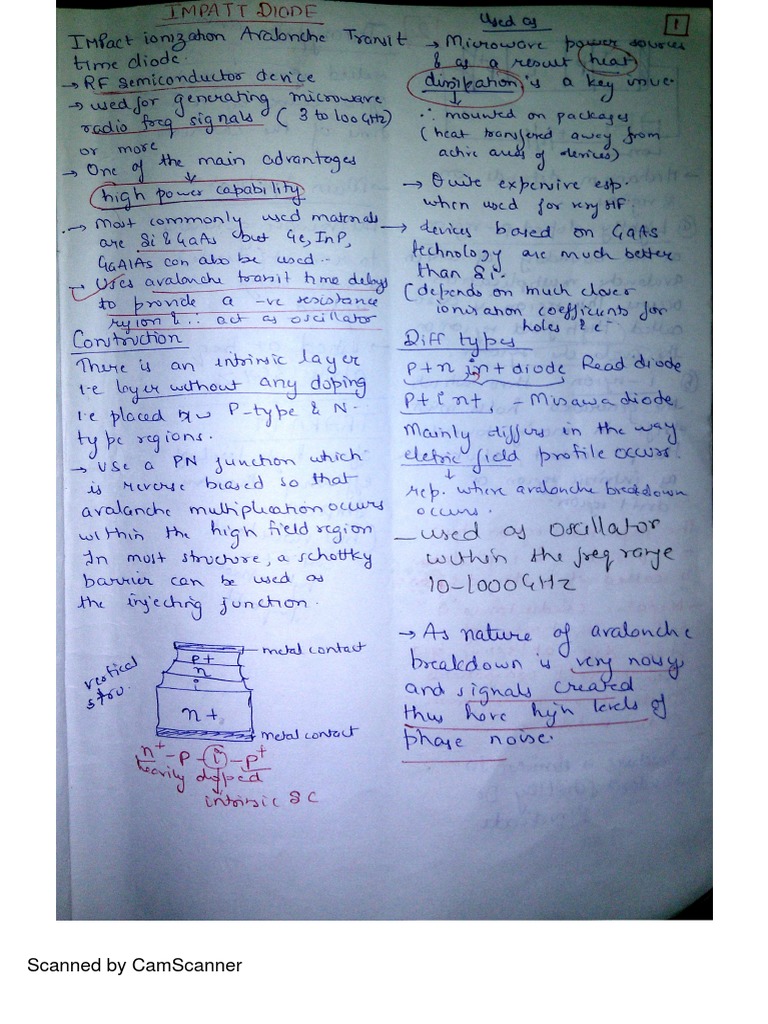 IMPATT DIODE
IMPact ionization Avalanche Transit
time diode.
→ RF semiconductor device
→ used for generating microwave
radio freq signals ( 3 to 100 GHz)
or more
→ One of the main advantages
↓
high power capability
→ Most commonly used materials
are Si & GaAs but Ge, InP,
GaAlAs can also be used.
→ Uses avalanche transit time delays
to provide a -ve resistance
region & ∴ act as oscillator
Construction
There is an intrinsic layer
i.e layer without any doping
i.e placed b/w P-type & N-
type regions.
→ Use a PN junction which
is reverse biased so that
avalanche multiplication occurs
within the high field region
In most structure, a schottky
barrier can be used as
the injecting junction.
vertical
stru.
metal contact
p+
n
i
n+
metal contact
n+ - p - i - p+
heavily dopped
intrinsic SC
1
Used as
→ Microwave power sources
& as a result heat
dissipation is a key issue.
↓
∴ mounted on packages
(heat transferred away from
active areas of devices)
→ Quite expensive esp.
when used for very HF.
→ devices based on GaAs
technology are much better
than Si.
(depends on much closer
ionisation coefficients for
holes & e-
Diff types
p+ n i n+ diode Read diode
p+ i n+, - Misawa diode
Mainly differs in the way
eletric field profile occurs
↓
rep. where avalanche breakdown
occurs.
- used as oscillator
within the freq range
10-1000GHz
→ As nature of avalanche
breakdown is very noisy
and signals created
thus have high levels of
phase noise.
Scanned by CamScanner